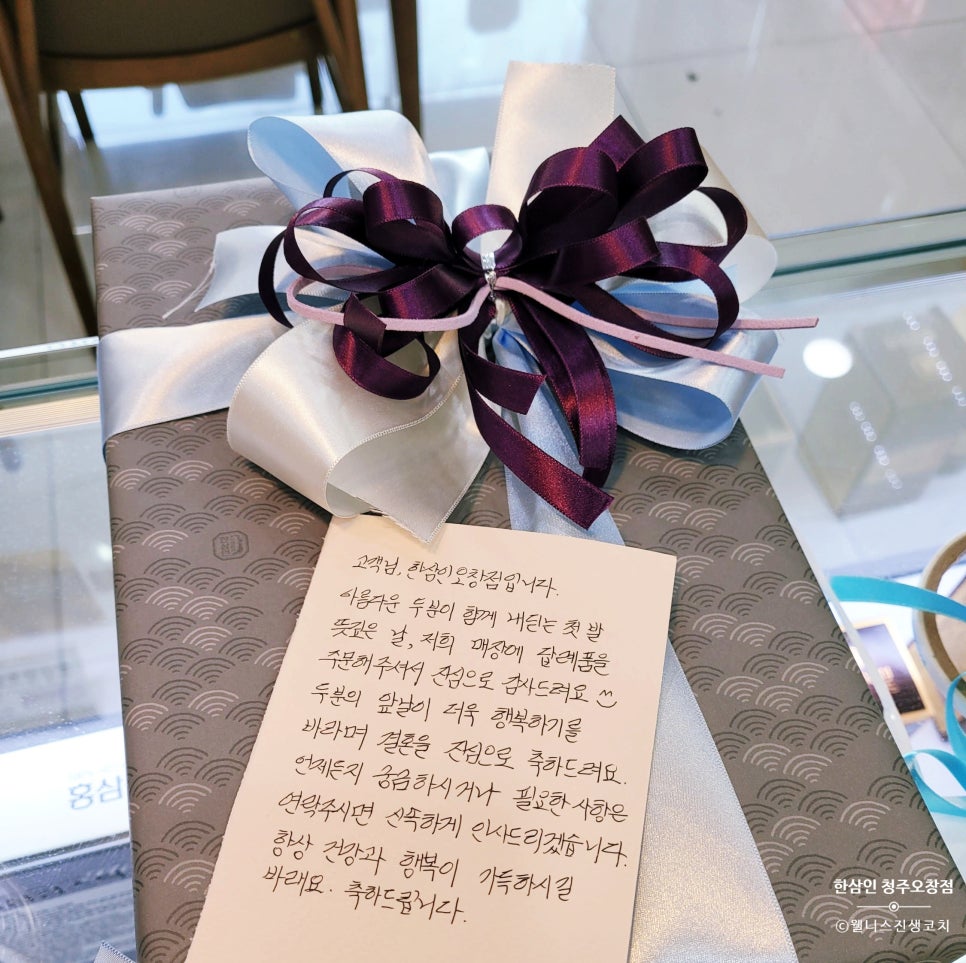 고객님, 한삼인오창점입니다.
아름다운 두분이 함께 내딛는 첫 발
뜻깊은 날, 저희 매장에 답례품을
주문해주셔서 진심으로 감사드려요
두분의 앞날이 더욱 행복하기를
바라며 결혼을 진심으로 축하드려요.
언제든지 궁금하시거나 필요한 사항은
연락주시면 신속하게 인사드리겠습니다.
항상 건강과 행복이 가득하시길
바래요. 축하드립니다.
홍삼
한삼인 청주오창점
©웰니스진생코치